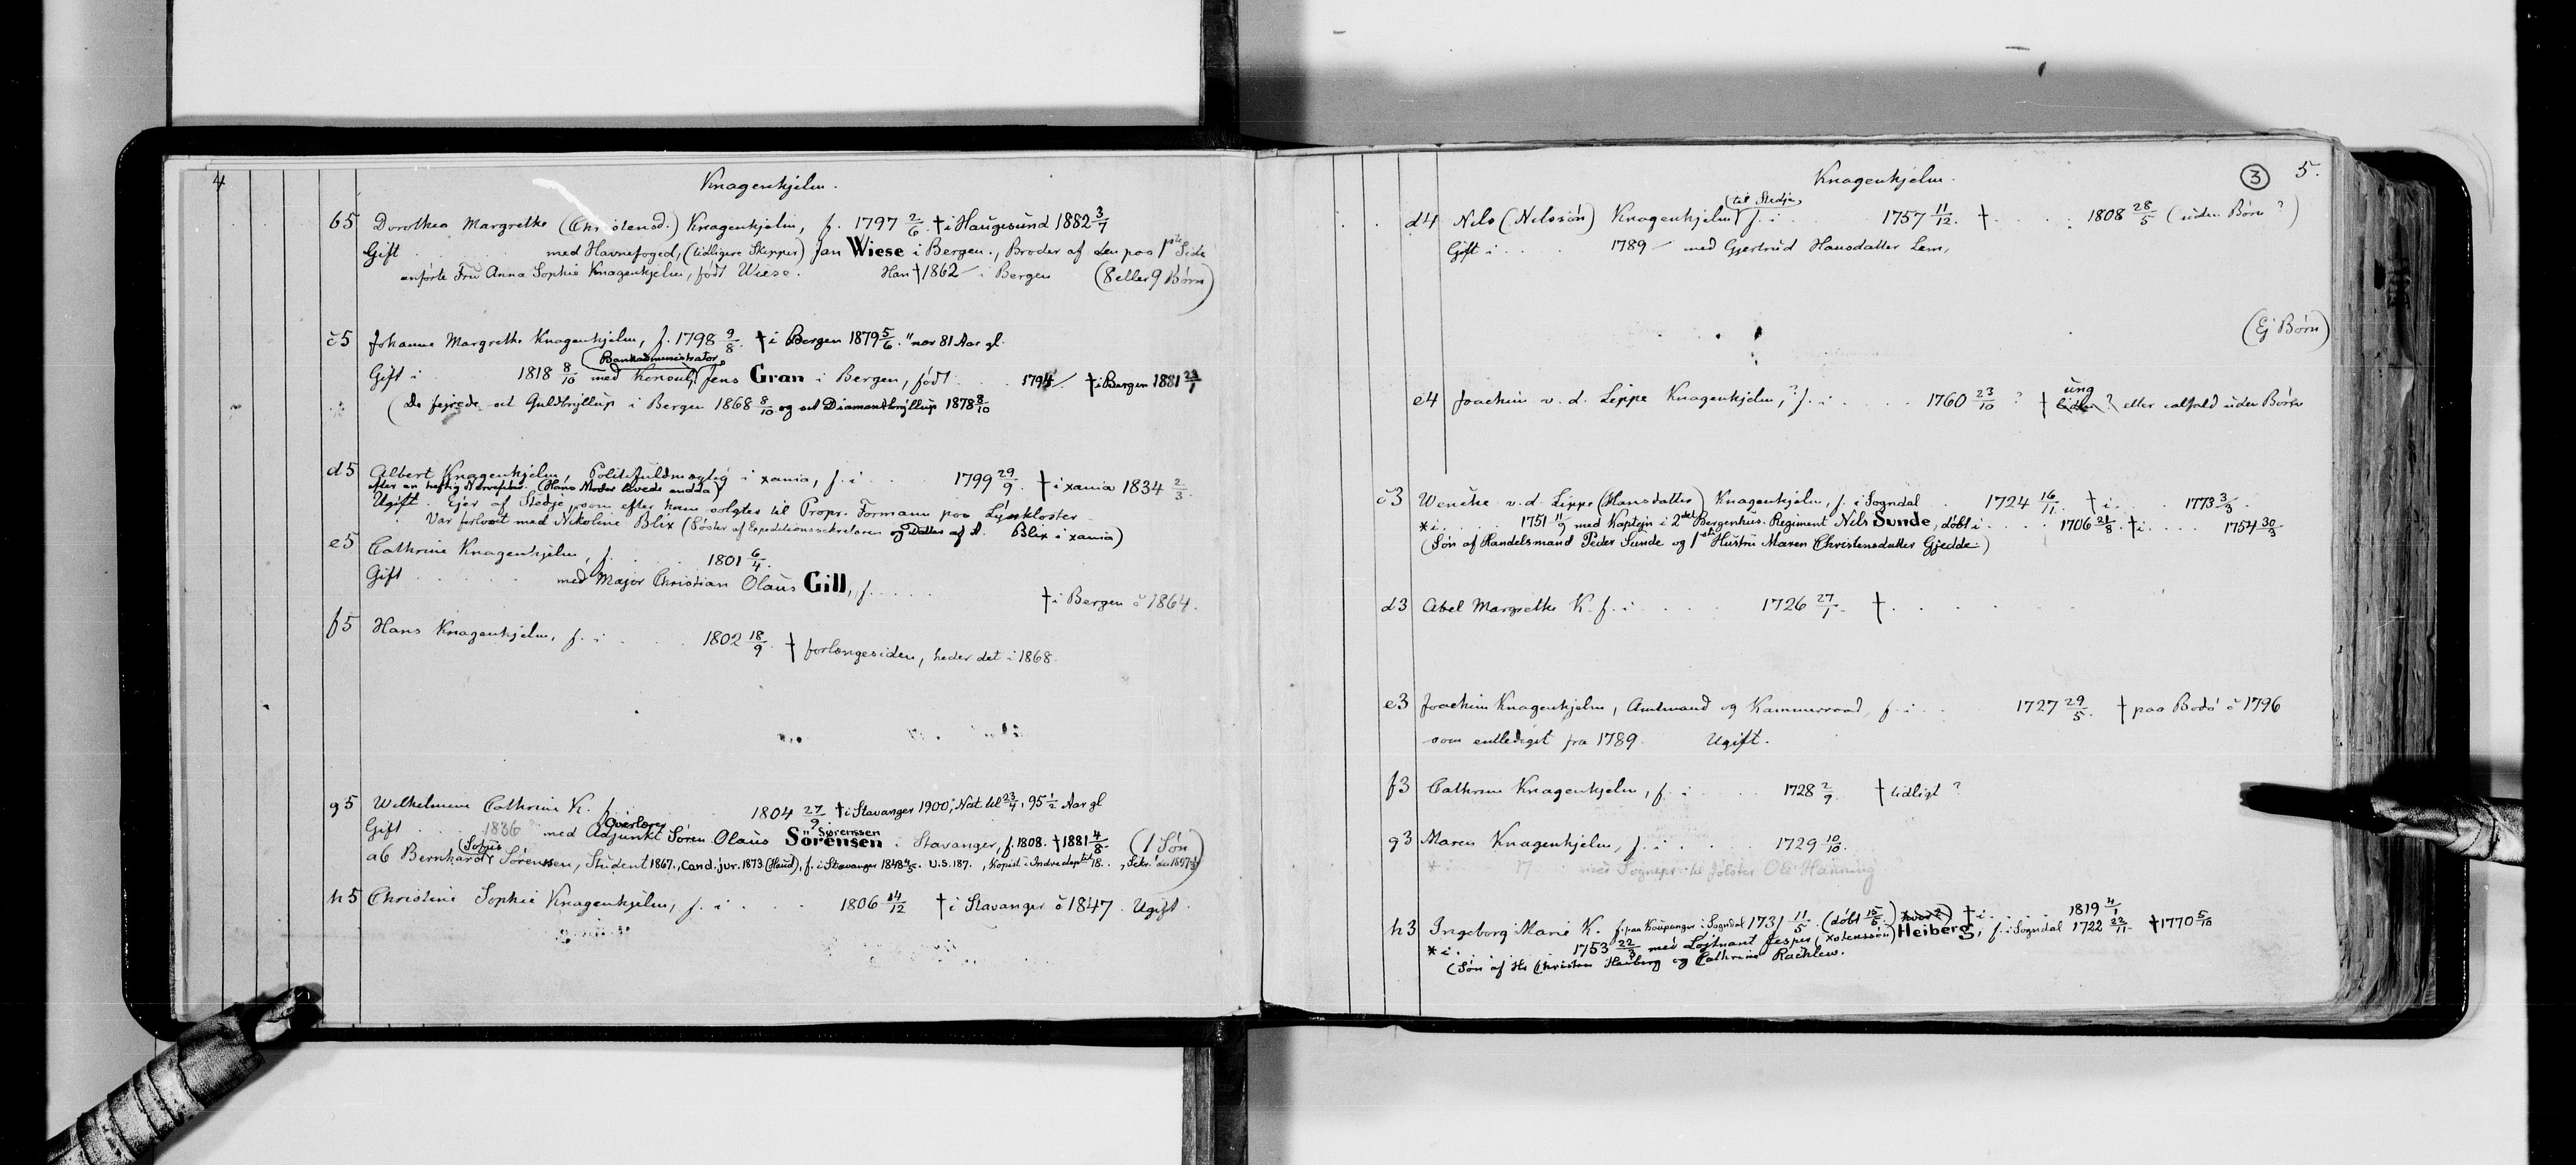 4
Knagenhjelm.
b5 Dorothea Margrethe (Christensd.) Knagenhjelm, f. 1797 2/6. † i Haugesund 1882 3/7
Gift . . . med Havnefoged, (tidligere Skipper) Jan Wiese i Bergen., Broder af den paa 1ste Side
anførte Fru Anna Sophie Knagenhjelm, født Wiese. Han † 1862 i Bergen (8 eller 9 Børn)
c5 Johanne Margrethe Knagenhjelm, f. 1798 9/8. † i Bergen 1879 5/6. "nær 81 Aar gl.
Bankadministrator
Gift i 1818 8/10 med Konsul Jens Gran i Bergen, født . . . 1794 † i Bergen 1881 23/1
(De fejrede sit Guldbryllup i Bergen 1868 8/10 og sit Diamantbryllup 1878 8/10
d5 Albert Knagenhjelm, Politifuldmægtig i Xania, f. i . . 1799 29/9. † i Xania 1834 2/3.
efter en heftig Nervefeber. (Hans Moder levede endda)
Ugift. Ejer af Stedje, som efter ham solgtes til Propr. Formann paa Lyseklostér
Var forlovet med Nikoline Blix (Søster af Expeditionssekretæren og Datter af A. Blix i Xania)
e5 Cathrine Knagenhjelm, f. . . . 1801 6/4.
Gift . . . . . med Major Christian Olaus Gill, f. . . . . † i Bergen c 1864.
f5 Hans Knagenhjelm, f. i . . . . 1802 18/9. † forlængesiden, heder det i 1868.
g5 Wilhelmine Cathrine K. f. . . 1804 27/9 † i Stavanger 1900, Nat til 23/4, 95 1/2 Aar gl
Overlærer Sørenssen
Gift . . 1836 med Adjunkt Søren Olaus Sörensen i Stavanger, f. 1808. † 1881 4/8 (1 Søn
Sofus
a6 Bernhard Sörensen, Student 1867., Cand. jur. 1873 (Haud), f. i Stavanger 1848 U.S. 187. , Kopist i Indredeptet 18. . , Sekr.
h5 Christine Sophie Knagenhjelm, f. i . . . 1806 14/12 † i Stavanger c 1847. Ugift.
Knagenhjelm. 3 5.
(til Stedje,
d4 Nils (Nilssøn) Knagenhjelm f. i . . 1757 11/12. † . . . . 1808 28/5 (uden Børn?)
Gift i . . . 1789 med Gjertrud Hansdatter Lem,
(Ej Børn)
ung
e4 Joachim v. d. Lippe Knagenhjelm,? f. i . . . . 1760 23/10 ? † ? eller ialfald uden Børn
c3 Wenche v. d. Lippe (Hansdatter) Knagenhjelm, f. i Sogndal . . 1724 16/11. † i. . . 1773 3/3.
* i. . . . 1751 11/9 med Kaptejn i 2det Bergenhus. Regiment Nils Sunde, døbt i . . . 1706 21/8. † i . . . 1754 30/3
(Søn af Handelsmand Peder Sunde og 1ste Hustru Maren Christensdatter Gjedde.)
d3 Abel Margrethe K. f. i . . . . 1726 27/1. † . . . . .
e3 Joachim Knagenhjelm, Amtmand og Kammerraad, f. i . . . 1727 29/5. † paa Bodø c 1796
som entlediget fra 1789. Ugift.
f3 Cathrine Knagenhjelm, f. i . . . 1728 2/9. † tidligt?
g3 Maren Knagenhjelm, f. i . . . . 1729 10/10.
* i . . 17 . . med Sognepr. til Jølster Ole Hanning
h3 Ingeborg Marie K. f. paa Kaupanger i Sogndal 1731 11/5. (døbt 15/5.) hvor? † i . . . 1819 4/1
* i. . . . 1753 22/3 med Løjtnant Jesper (Xstenssøn) Heiberg, f. i Sogndal 1722 22/11. † 1770 5/10
(Søn af Hr Christen Heiberg og Cathrine Rachlew.